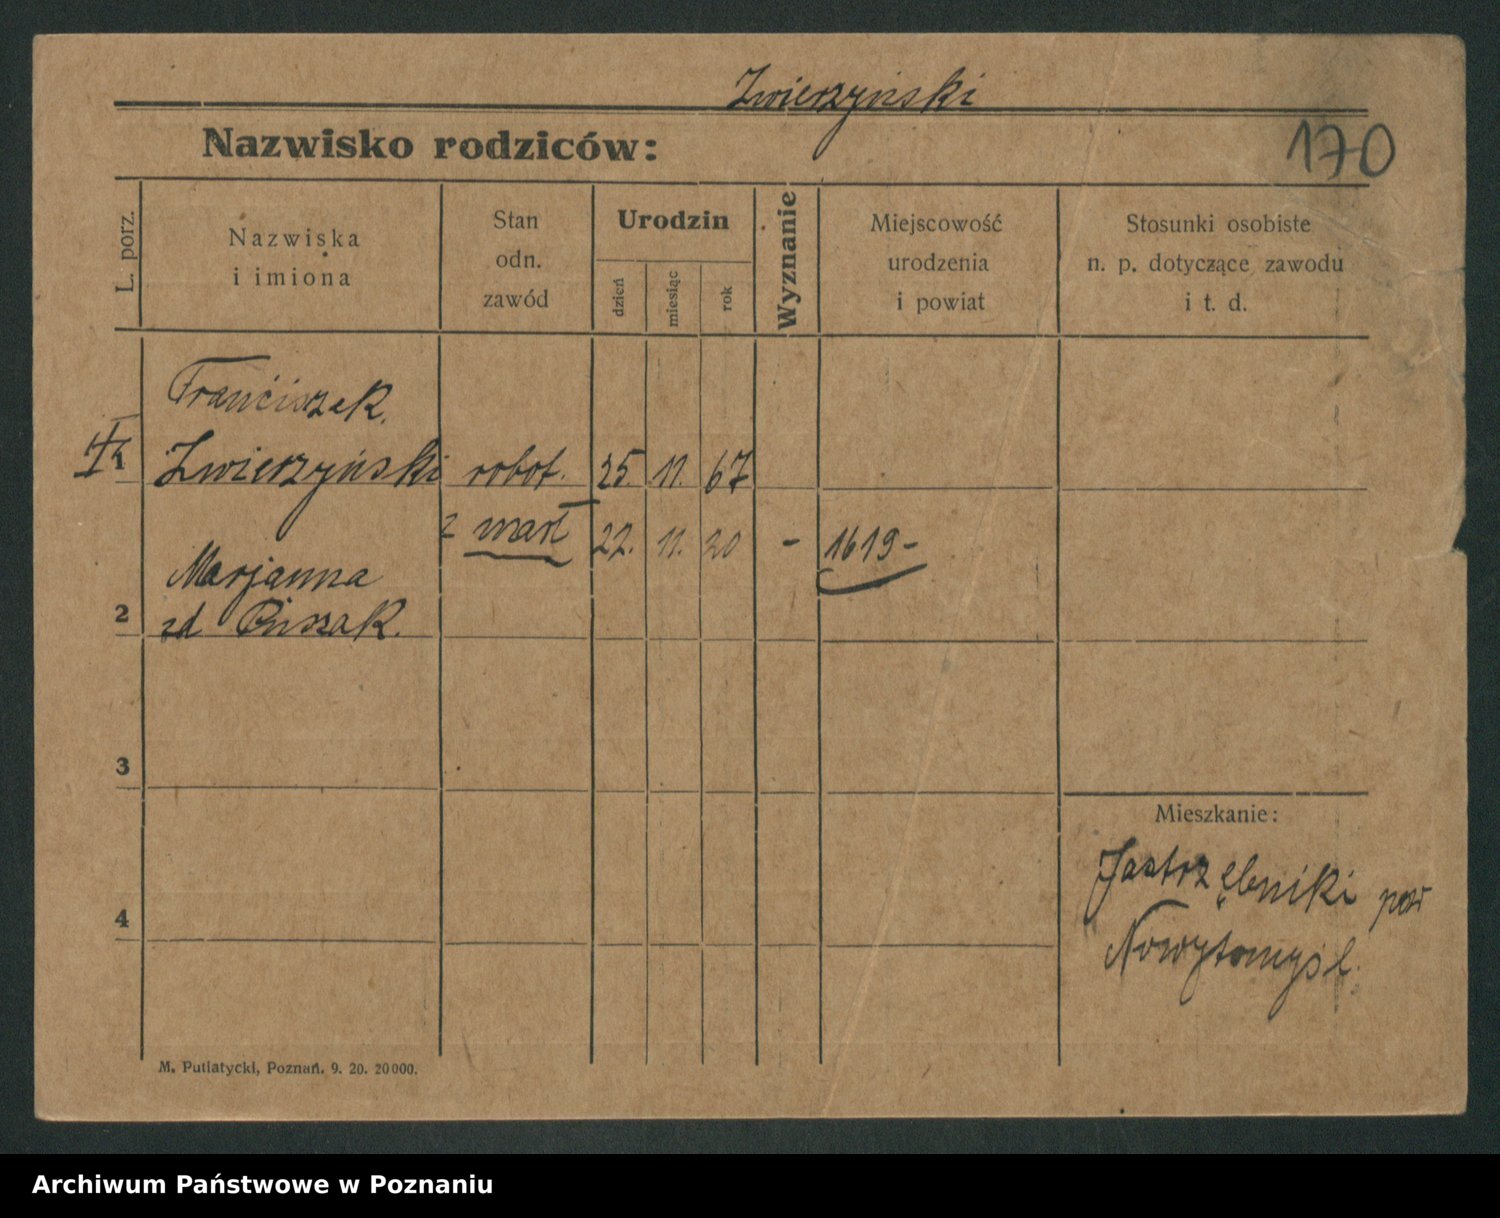 Zwierzyński
Nazwisko rodziców:
170
L. porz.
Nazwiska
i imiona
Stan
odn.
zawód
Urodzin
dzień
miesiąc
rok
Wyznanie
Miejscowość
urodzenia
i powiat
Stosunki osobiste
n. p. dotyczące zawodu
i t. d.
Franciszek
1 Zwierzyński robot. 25. 11. 67
zmarł 22. 11. 20 - 1619-
Marjanna
2 zd
3
4
Mieszkanie:
Jastrzębniki pow
Nowytomyśl.
M. Putiatycki, Poznań. 9. 20. 20000.
Archiwum Państwowe w Poznaniu